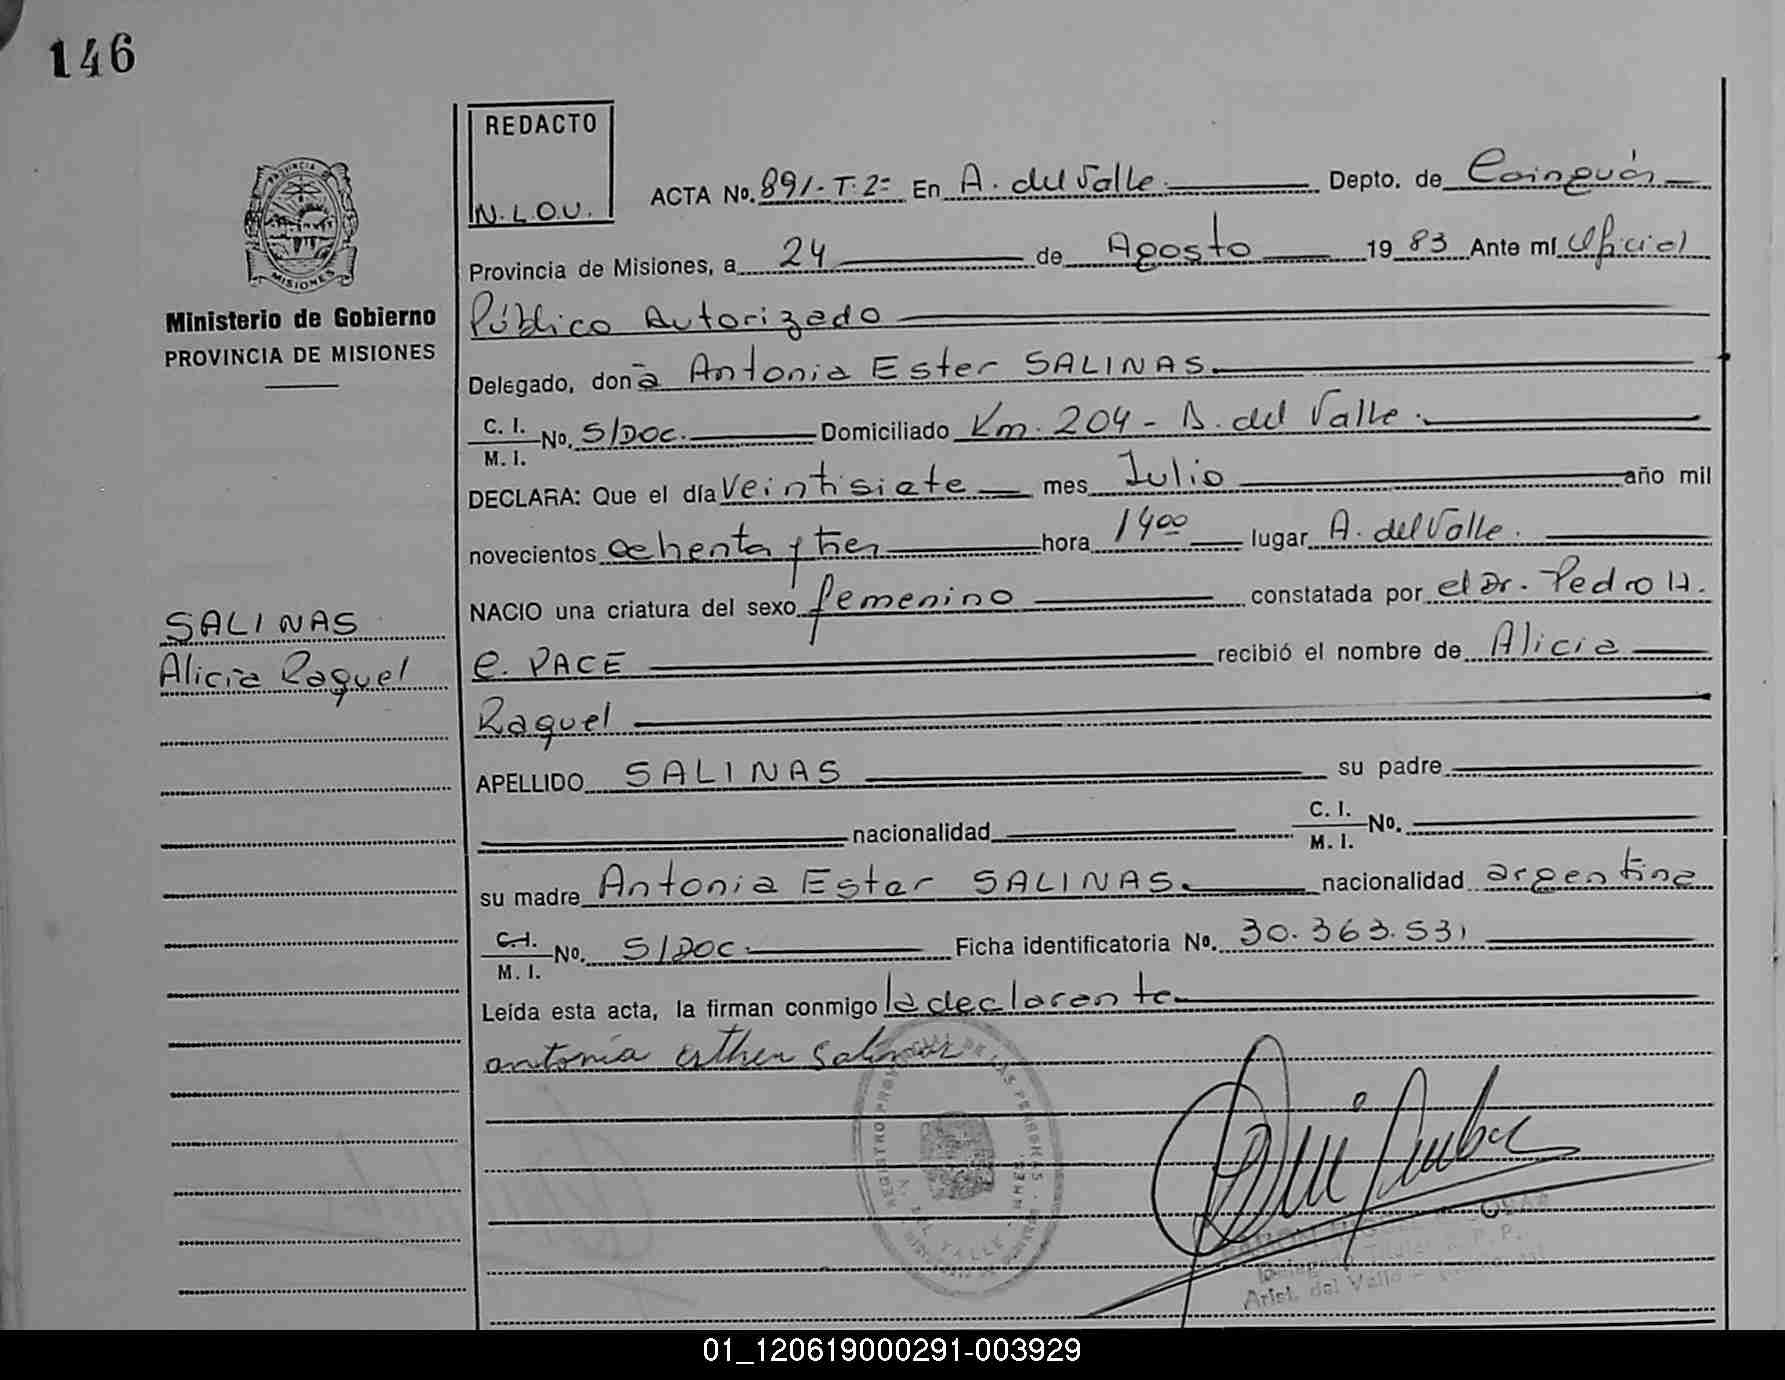 146
REDACTO
N.L.O.U.
ACTA No. 891-T:2= En A. del Valle. Depto. de Cainguás
Provincia de Misiones, a 24 de Agosto 1983 Ante mí Oficial
Ministerio de Gobierno
PROVINCIA DE MISIONES
Público Autorizado
Delegado, donã Antonia Ester SALINAS.
C. I.
M. I. No. S/DOC. Domiciliado Km. 204 - A. del Valle.
DECLARA: Que el día Veintisiete mes Julio año mil
novecientos ochenta y tres hora 1400 lugar A. del Valle.
NACIO una criatura del sexo femenino constatada por el Dr. Pedro H.
SALINAS
Alicia Raquel
C. PACE recibió el nombre de Alicia
Raquel
APELLIDO SALINAS su padre
nacionalidad C. I.
M. I. No.
su madre Antonia Ester SALINAS. nacionalidad argentina
C. I.
M. I. No. S/DOC. Ficha identificatoria No. 30.363.531
Leída esta acta, la firman conmigo la declarante.
antonia esther Salinas
REGISTRO DE LAS PERSONAS
A. DEL VALLE
Delegado Titular R. P. P.
Arist. del Valle
01_120619000291-003929